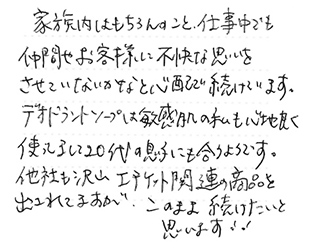 家族内はもちろんのこと、仕事中でも
仲間やお客様に不快な思いを
させていないかなと心配で続けています。
デオドラントソープは敏感肌の私も心地良く
使えるして20代の息子にも合うようです。
他社も沢山エチケット関連の商品を
出されてますが、このまま続けたいと
思います!!